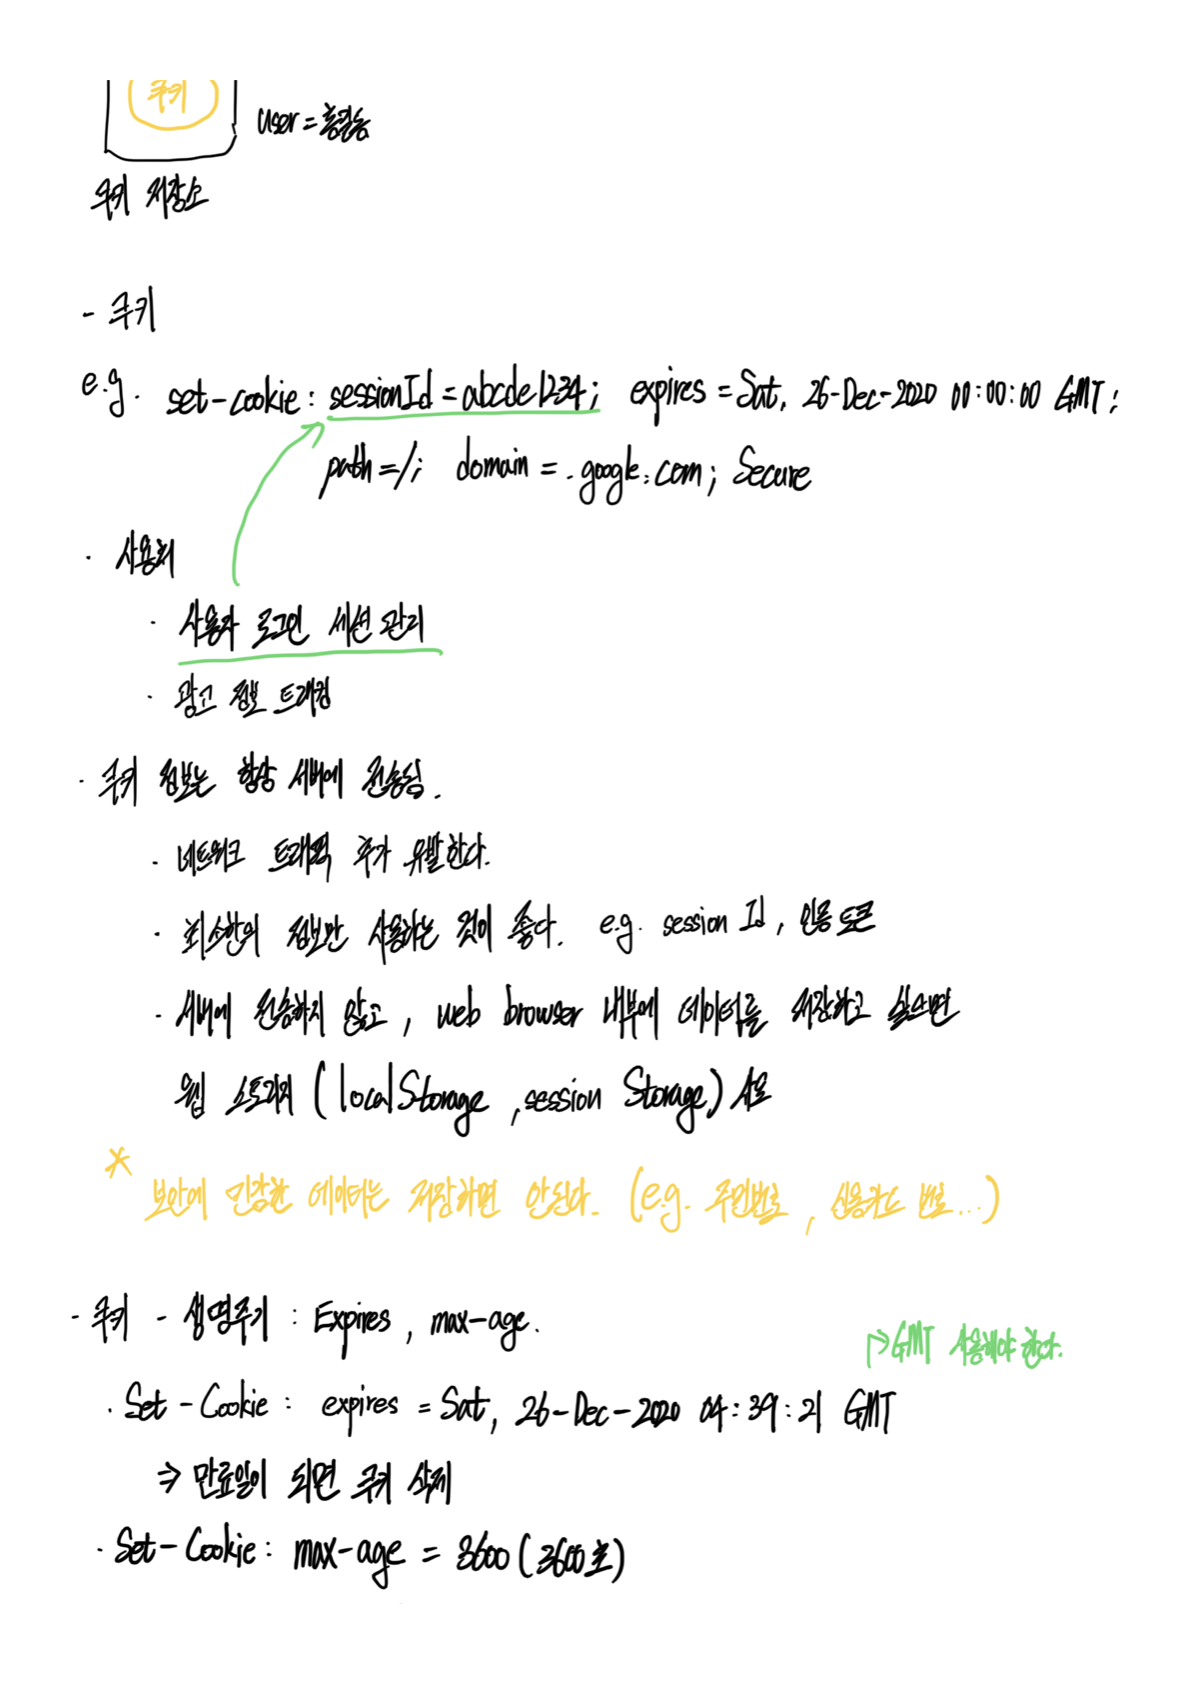 쿠키
user=홍길동
쿠키 저장소
- 쿠키
e.g. set-cookie: sessionId=abcde1234; expires=Sat, 26-Dec-2020 00:00:00 GMT;
path=/; domain=.google.com; Secure
· 사용처
· 사용자 로그인 세션 관리
· 광고 정보 트래킹
· 쿠키 정보는 항상 서버에 전송됨.
· 네트워크 트래픽 추가 유발한다.
· 최소한의 정보만 사용하는 것이 좋다. e.g. session Id, 인증 토큰
· 서버에 전송하지 않고, web browser 내부에 데이터를 저장하고 싶으면
웹 스토리지 (localStorage, session Storage) 사용
* 보안에 민감한 데이터는 저장하면 안된다. (e.g. 주민번호, 신용카드 번호...)
- 쿠키 - 생명주기 : Expires, max-age.
↱GMT 사용해야 한다.
· Set-Cookie: expires=Sat, 26-Dec-2020 04:39:21 GMT
⇒ 만료일이 되면 쿠키 삭제
· Set-Cookie: max-age = 3600 (3600초)